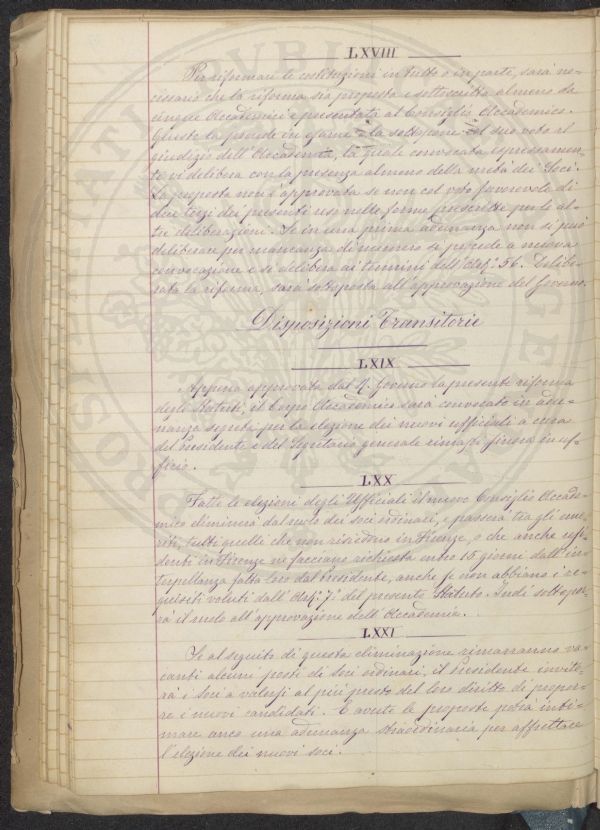 LXVIII
Per riformare le costituzioni in tutto o in parte, sarà ne-
cessario che la riforma sia proposta e sottoscritta almeno da
cinque Accademici e presentata al Consiglio Accademico.
Questo la prende in esame e la sottopone col suo voto al
giudizio dell'Accademia, la quale convocata espressamen-
te vi delibera con la presenza almeno della metà dei Soci.
La proposta non è approvata se non col voto favorevole di
due terzi dei presenti reso nelle forme prescritte per le al-
tre deliberazioni. Se in una prima adunanza non si può
deliberare per mancanza di numero si procede a nuova
convocazione e si delibera ai termini dell'Art.º 56. Delibe-
rata la riforma, sarà sottoposta all'approvazione del Governo.
Disposizioni Transitorie
LXIX
Appena approvata dal R. Governo la presente riforma
degli Statuti, il Corpo Accademico sarà convocato in adu-
nanza segreta per la elezione dei nuovi ufficiali a cura
del Presidente e del Segretario generale rimasti finora in uf-
ficio.
LXX
Fatte le elezioni degli Ufficiali il nuovo Consiglio Accade-
mico eliminerà dal ruolo dei soci ordinari, e passerà tra gli eme-
riti, tutti quelli che non risiedono in Firenze, o che anche resi-
denti in Firenze ne facciano richiesta entro 15 giorni dall'in-
terpellanza fatta loro dal Presidente, anche se non abbiano i re-
quisiti voluti dall'Art.º 7º del presente Statuto. Indi sottopor-
rà il ruolo all'approvazione dell'Accademia.
LXXI
Se al seguito di questa eliminazione rimarranno va-
canti alcuni posti di Soci ordinari, il Presidente invite-
rà i Soci a valersi al più presto del loro diritto di propor-
re i nuovi candidati. E avute le proposte potrà inti-
mare anco una adunanza straordinaria per affrettare
l'elezione dei nuovi soci.